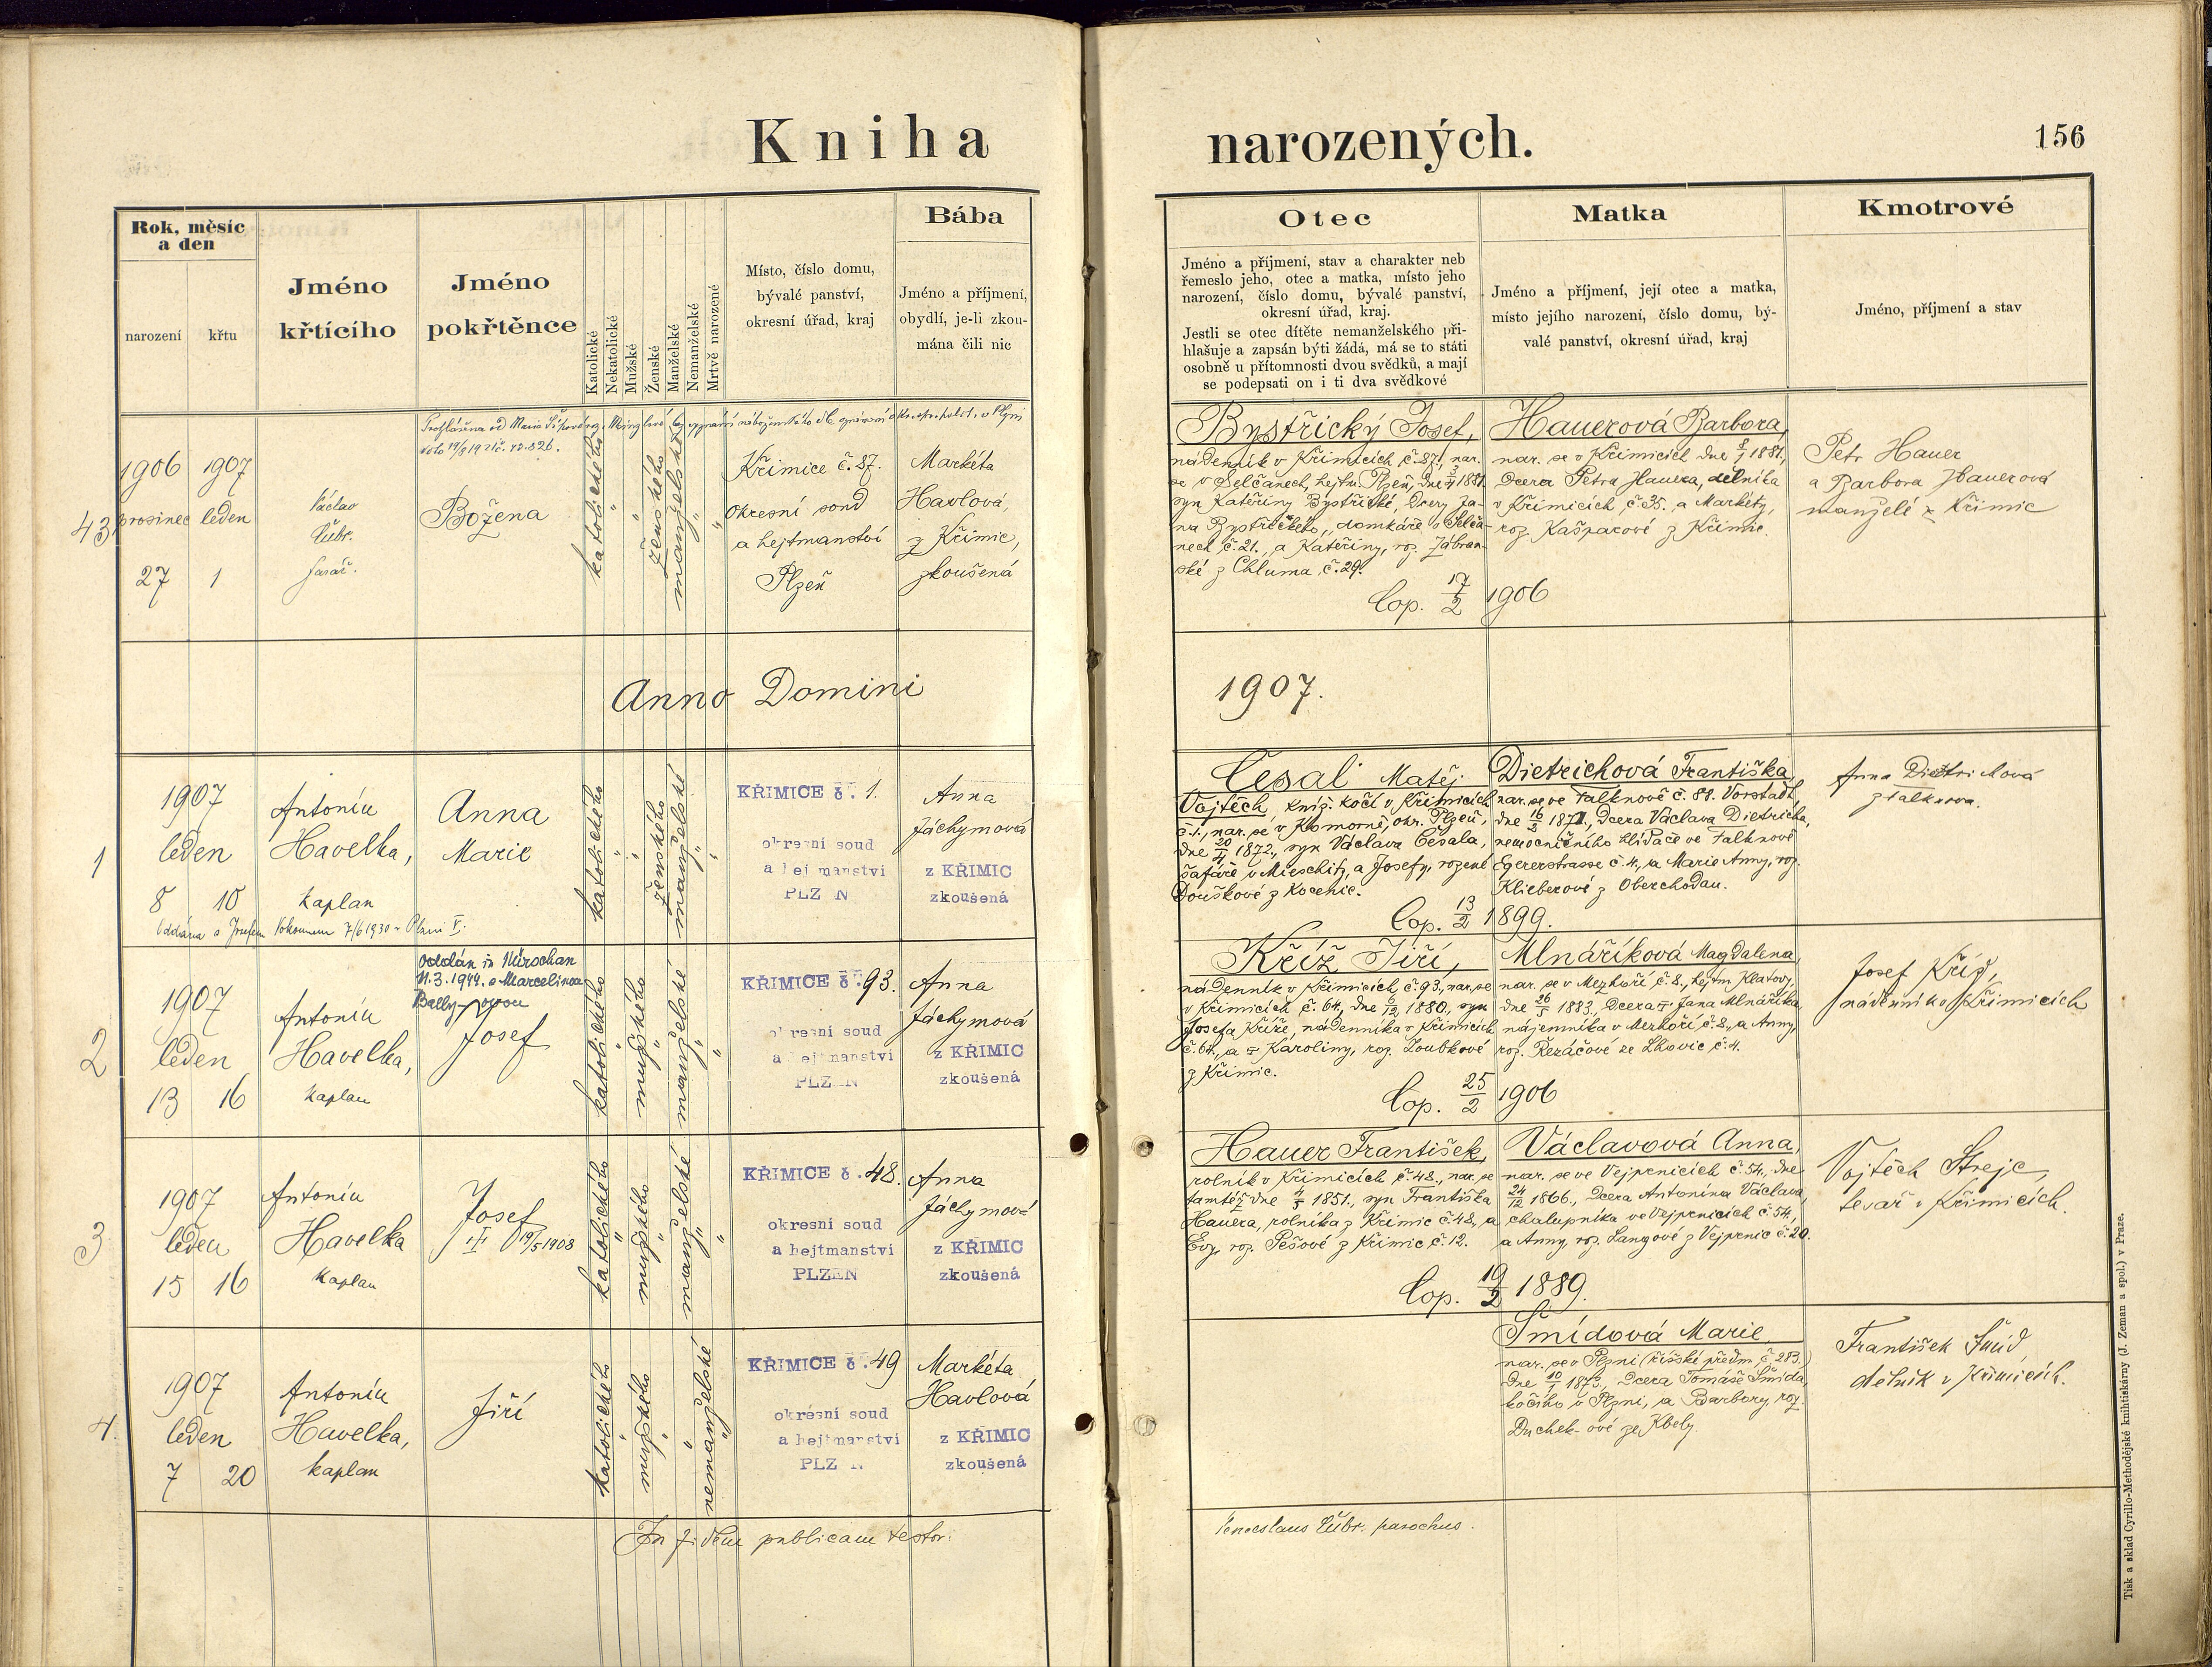 Kniha narozených.
156
Rok, měsíc
a den
narození
křtu
Jméno
křtícího
Jméno
pokřtěnce
Katolické
Nekatolické
Mužské
Ženské
Manželské
Nemanželské
Mrtvě narozené
Místo, číslo domu,
bývalé panství,
okresní úřad, kraj
Bába
Jméno a příjmení,
obydlí, je-li zkou-
mána čili nic
Otec
Jméno a příjmení, stav a charakter neb
řemeslo jeho, otec a matka, místo jeho
narození, číslo domu, bývalé panství,
okresní úřad, kraj.
Jestli se otec dítěte nemanželského při-
hlašuje a zapsán býti žádá, má se to státi
osobně u přítomnosti dvou svědků, a mají
se podepsati on i ti dva svědkové
Matka
Jméno a příjmení, její otec a matka,
místo jejího narození, číslo domu, bý-
valé panství, okresní úřad, kraj
Kmotrové
Jméno, příjmení a stav
43
1906 1907
prosinec leden
27 1
Václav
farář.
Božena
katolického
ženského
manželské
Křimice č. 87.
Okresní soud
a hejtmanství
Plzeň
Markéta
Havlová,
z Křimic,
zkoušená
Bystřický Josef,
nádenník v Křimicích, č. 87., nar.
se v Selčanech, hejtm. Plzeň, dne 1881.
syn Kateřiny Bystřické, dcery Ja-
na Bystřického, domkáře v Selča-
nech č. 21., a Kateřiny, roz. Zábran-
ské z Chluma, č. 29.
Cop. 17/2 1906
Hauerová Barbora,
nar. se v Křimicích dne 8/1 1881.,
dcera Petra Hauera, dělníka
v Křimicích, č. 35., a Markéty,
roz. Kašparové z Křimic.
Petr Hauer
a Barbora Hauerová
manželé z Křimic
Anno Domini 1907.
1
1907
leden
8 10
Antonín
Havelka,
kaplan
Anna
Marie
katolického
ženského
manželské
KŘIMICE č. 1.
okresní soud
a hejtmanství
PLZEŇ
Anna
Jáchymová
z KŘIMIC
zkoušená
Česal Matěj
Vojtěch, kníž. kočí v Křimicích
č. 1., nar. se v Komorně, okr. Plzeň,
dne 20/4 1872., syn Václava Česala,
šafáře v Mieschitz, a Josefy, rozené
Douškové z Kocenic.
Cop. 13/2 1899.
Dietrichová Františka,
nar. se ve Falknově č. 88. Vorstadt,
dne 16/3 1871., dcera Václava Dietricha,
nemocničního hlídače ve Falknově
Egererstrasse č. 4., a Marie Anny, roz.
Klieberové z Oberchodau.
Anna Dietrichová
z Falknova.
2
1907
leden
13 16
Antonín
Havelka,
kaplan
oddán in Nürschan
11.3.1944. s Marcelinou
Josef
katolického
mužského
manželské
KŘIMICE č. 93.
okresní soud
a hejtmanství
PLZEŇ
Anna
Jáchymová
z KŘIMIC
zkoušená
Kříž Jiří,
nádenník v Křimicích, č. 93., nar. se
v Křimicích č. 64., dne 1880., syn
Josefa Kříže, nádenníka v Křimicích
č. 64., a Karoliny, roz. Zoubkové
z Křimic.
Cop. 25/2 1906
Mlnáříková Magdalena,
nar. se v Mezhoří, č. 8., hejtm. Klatovy,
dne 26/5 1883., dcera Jana Mlnáříka,
nájemníka v Mezhoří, č. 8., a Anny,
roz. Řezáčové ze Lhovic č. 4.
Josef Kříž,
nádenník v Křimicích
3
1907
leden
15 16
Antonín
Havelka
kaplan
Josef
19/5 1908
katolického
mužského
manželské
KŘIMICE č. 48.
okresní soud
a hejtmanství
PLZEŇ
Anna
Jáchymová
z KŘIMIC
zkoušená
Hauer František,
rolník v Křimicích č. 48., nar. se
tamtéž dne 4/5 1851., syn Františka
Hauera, rolníka z Křimic č. 48., a
Evy, roz. Pešové z Křimic, č. 12.
Cop. 19/2 1889.
Václavová Anna,
nar. se ve Vejprnicích č. 54., dne
24/12 1866., dcera Antonína Václava,
chalupníka ve Vejprnicích č. 54.,
a Anny, roz. Langové z Vejprnic č. 20.
Vojtěch Strejc,
tesař v Křimicích.
4.
1907
leden
7 20
Antonín
Havelka,
kaplan
Jiří
katolického
mužského
nemanželské
KŘIMICE č. 49
okresní soud
a hejtmanství
PLZEŇ
Markéta
Havlová
z KŘIMIC
zkoušená
Šmídová Marie,
nar. se v Plzni (říšské předm. č. 283.)
dne 10/1 1873., dcera Tomáše Šmída,
kočího v Plzni, a Barbory, roz.
Duchek-ové ze Kbely.
František Šmíd
dělník v Křimicích.
In fidem publicam testor:
Venceslaus parochus.
Tisk a sklad Cyrillo-Methodějské knihtiskárny (J. Zeman a spol.) v Praze.